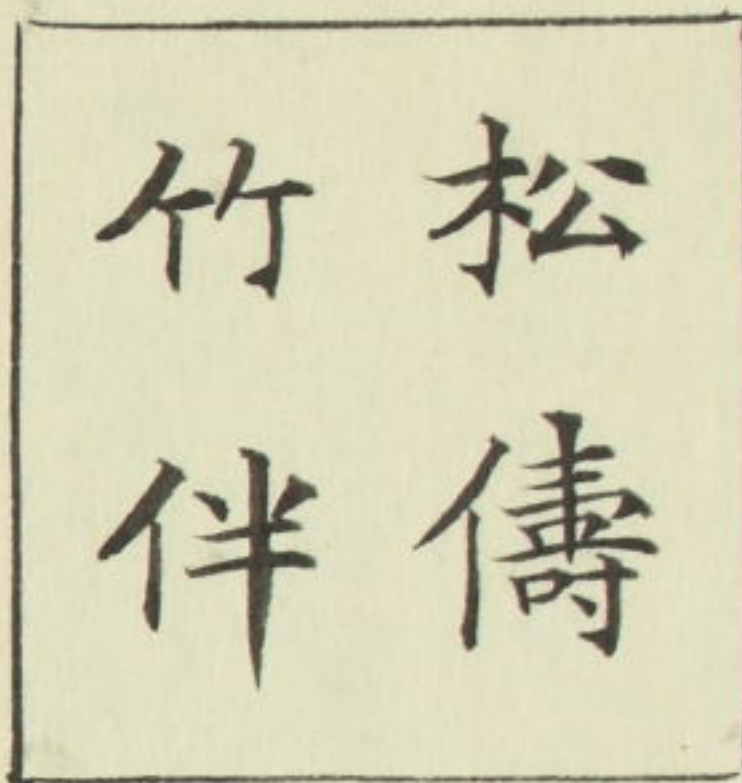 松儔
竹伴